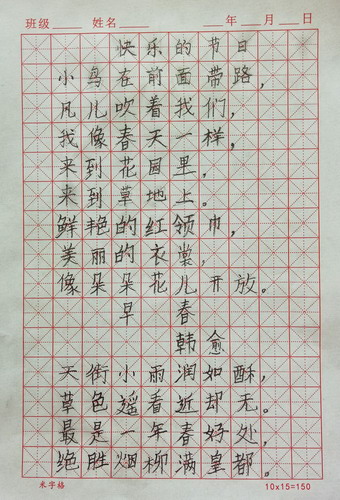 班级 姓名 年 月 日
快乐的节日
小鸟在前面带路，
风儿吹着我们，
我像春天一样，
来到花园里，
来到草地上。
鲜艳的红领巾，
美丽的衣裳，
像朵朵花儿开放。
早春
韩愈
天街小雨润如酥，
草色遥看近却无。
最是一年春好处，
绝胜烟柳满皇都。
米字格 10x15=150